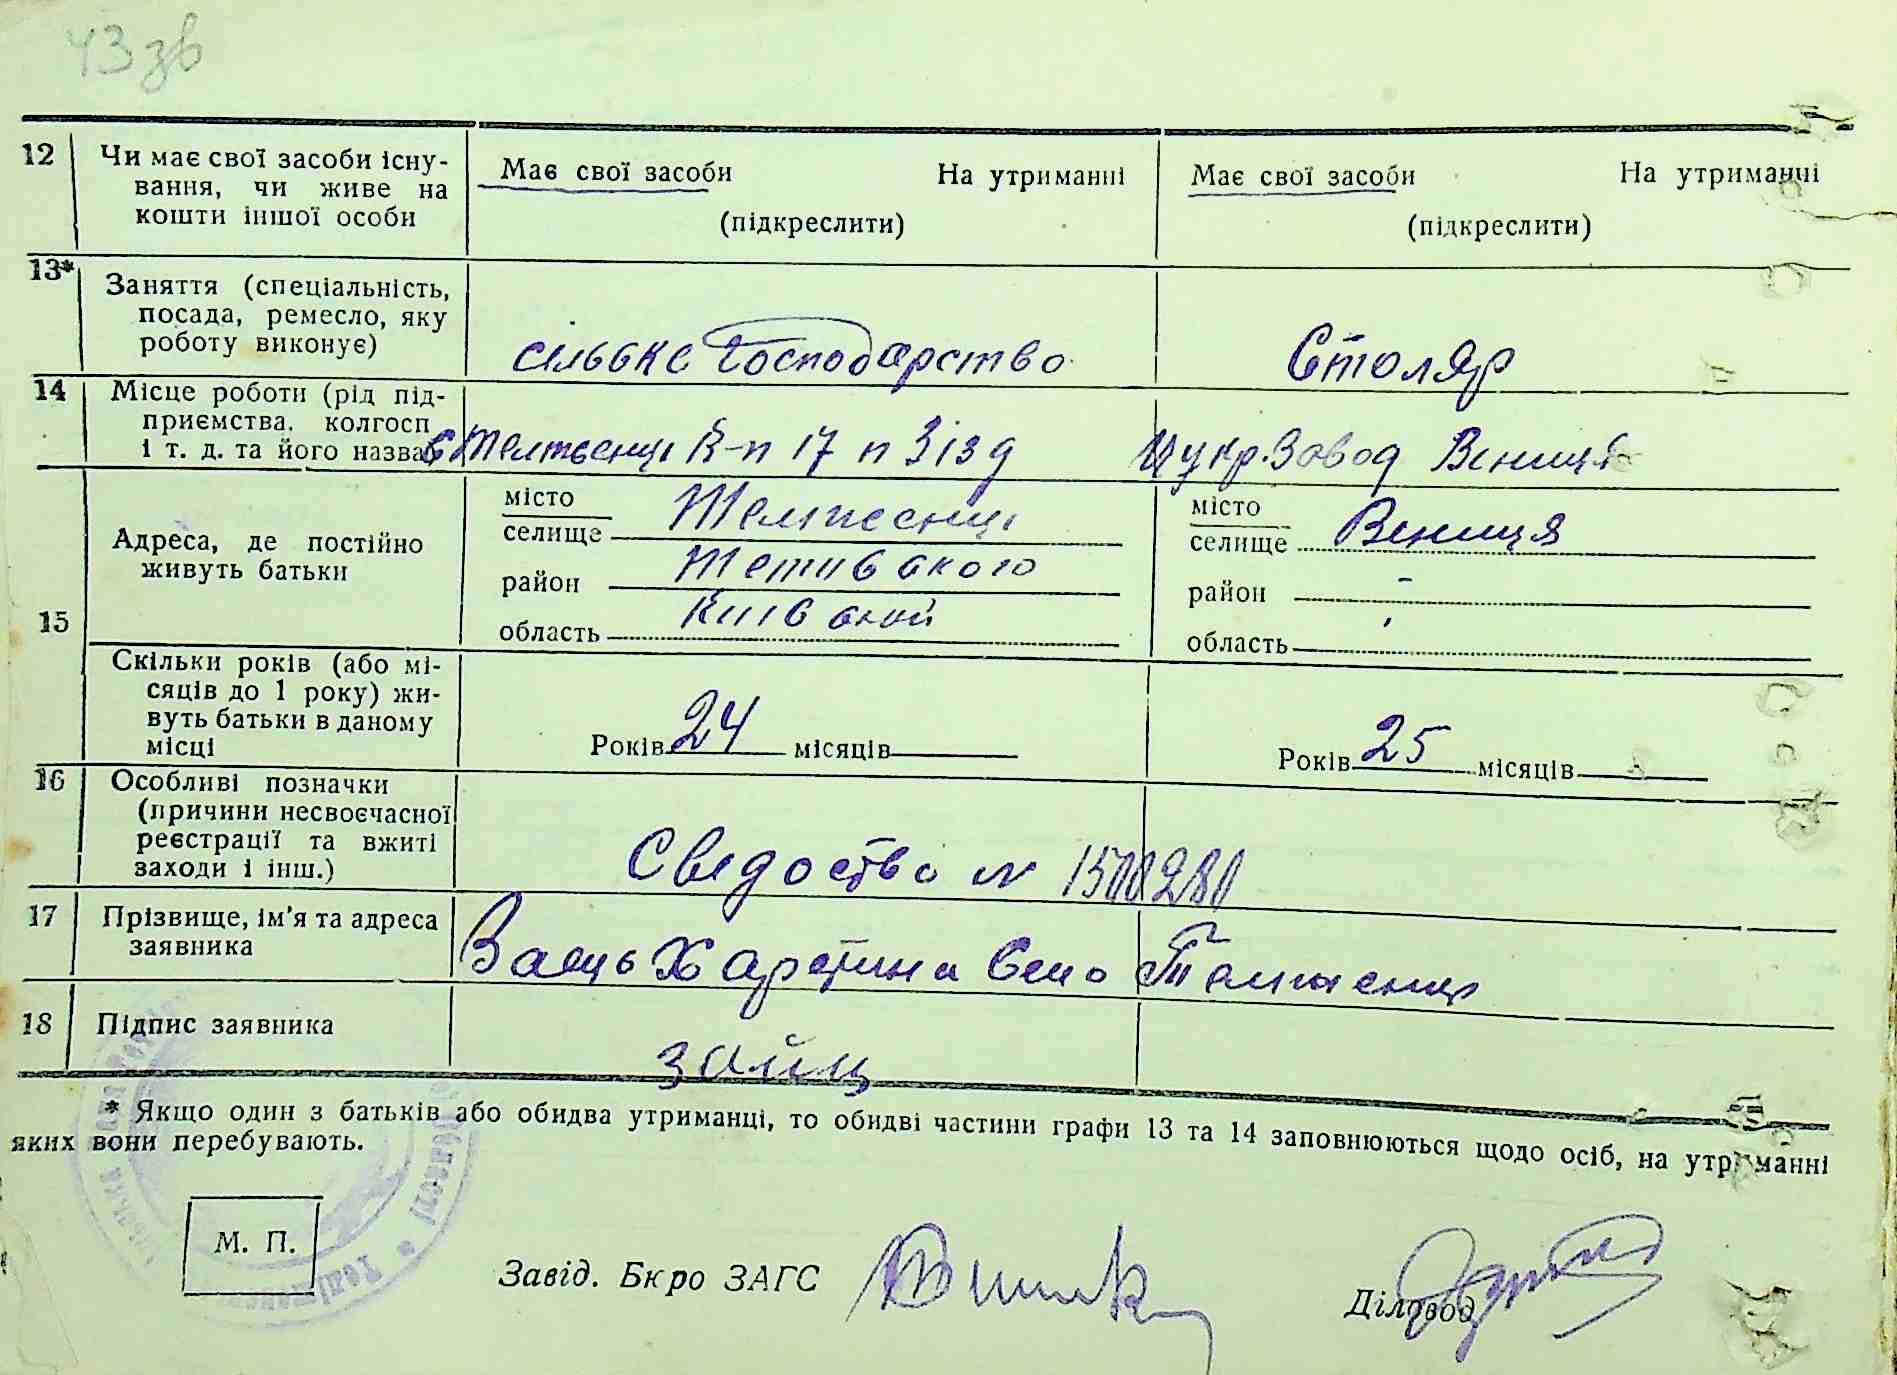 43 зв
12 Чи має свої засоби існу- Має свої засоби На утриманні Має свої засоби На утриманні
вання, чи живе на
кошти іншої особи (підкреслити) (підкреслити)
13* Заняття (спеціальність,
посада, ремесло, яку
роботу виконує) сільське Господарство Столяр
14 Місце роботи (рід під-
приємства, колгосп
і т. д. та його назва) К-п 17 п Зізд Цукр.Завод Вениця
15 Адреса, де постійно
живуть батьки
місто
селище
район Тетивского
область Київской
місто
селище Вениця
район -
область
Скільки років (або мі-
сяців до 1 року) жи-
вуть батьки в даному
місці Років 24 місяців Років 25 місяців
16 Особливі позначки
(причини несвоєчасної
реєстрації та вжиті
заходи і інш.) Сведоство N 1500280
17 Прізвище, ім'я та адреса
заявника Заець Харетина село
18 Підпис заявника заяц
* Якщо один з батьків або обидва утриманці, то обидві частини графи 13 та 14 заповнюються щодо осіб, на утриманні
яких вони перебувають.
М. П.
Завід. Бюро ЗАГС Діловод